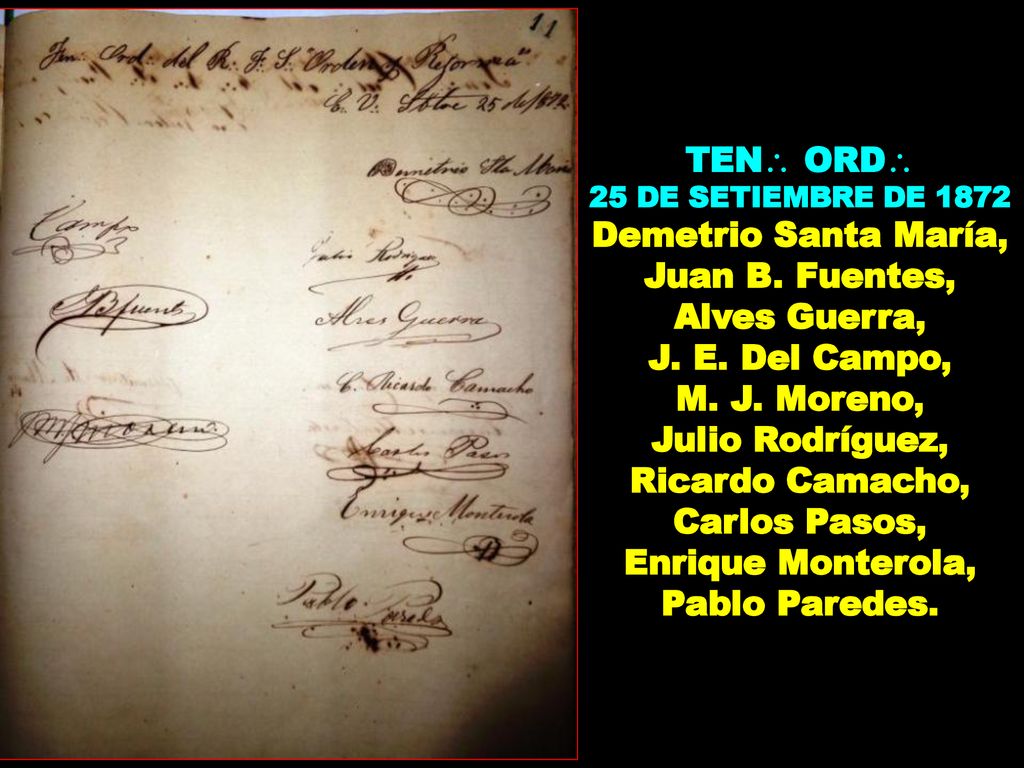 11
Ten∴ Ord. del R∴ F∴ S∴ "Orden y Reforma"
E∴ V∴ Sbtre 25 de/872
Demetrio Sta Maria
Campo
Julio Rodriguez
JBfuents
Alves Guerra
C. Ricardo Camacho
MJMoreno
Carlos Pasos
Enrique Monterola
Pablo Paredes
TEN∴ ORD∴
25 DE SETIEMBRE DE 1872
Demetrio Santa María,
Juan B. Fuentes,
Alves Guerra,
J. E. Del Campo,
M. J. Moreno,
Julio Rodríguez,
Ricardo Camacho,
Carlos Pasos,
Enrique Monterola,
Pablo Paredes.